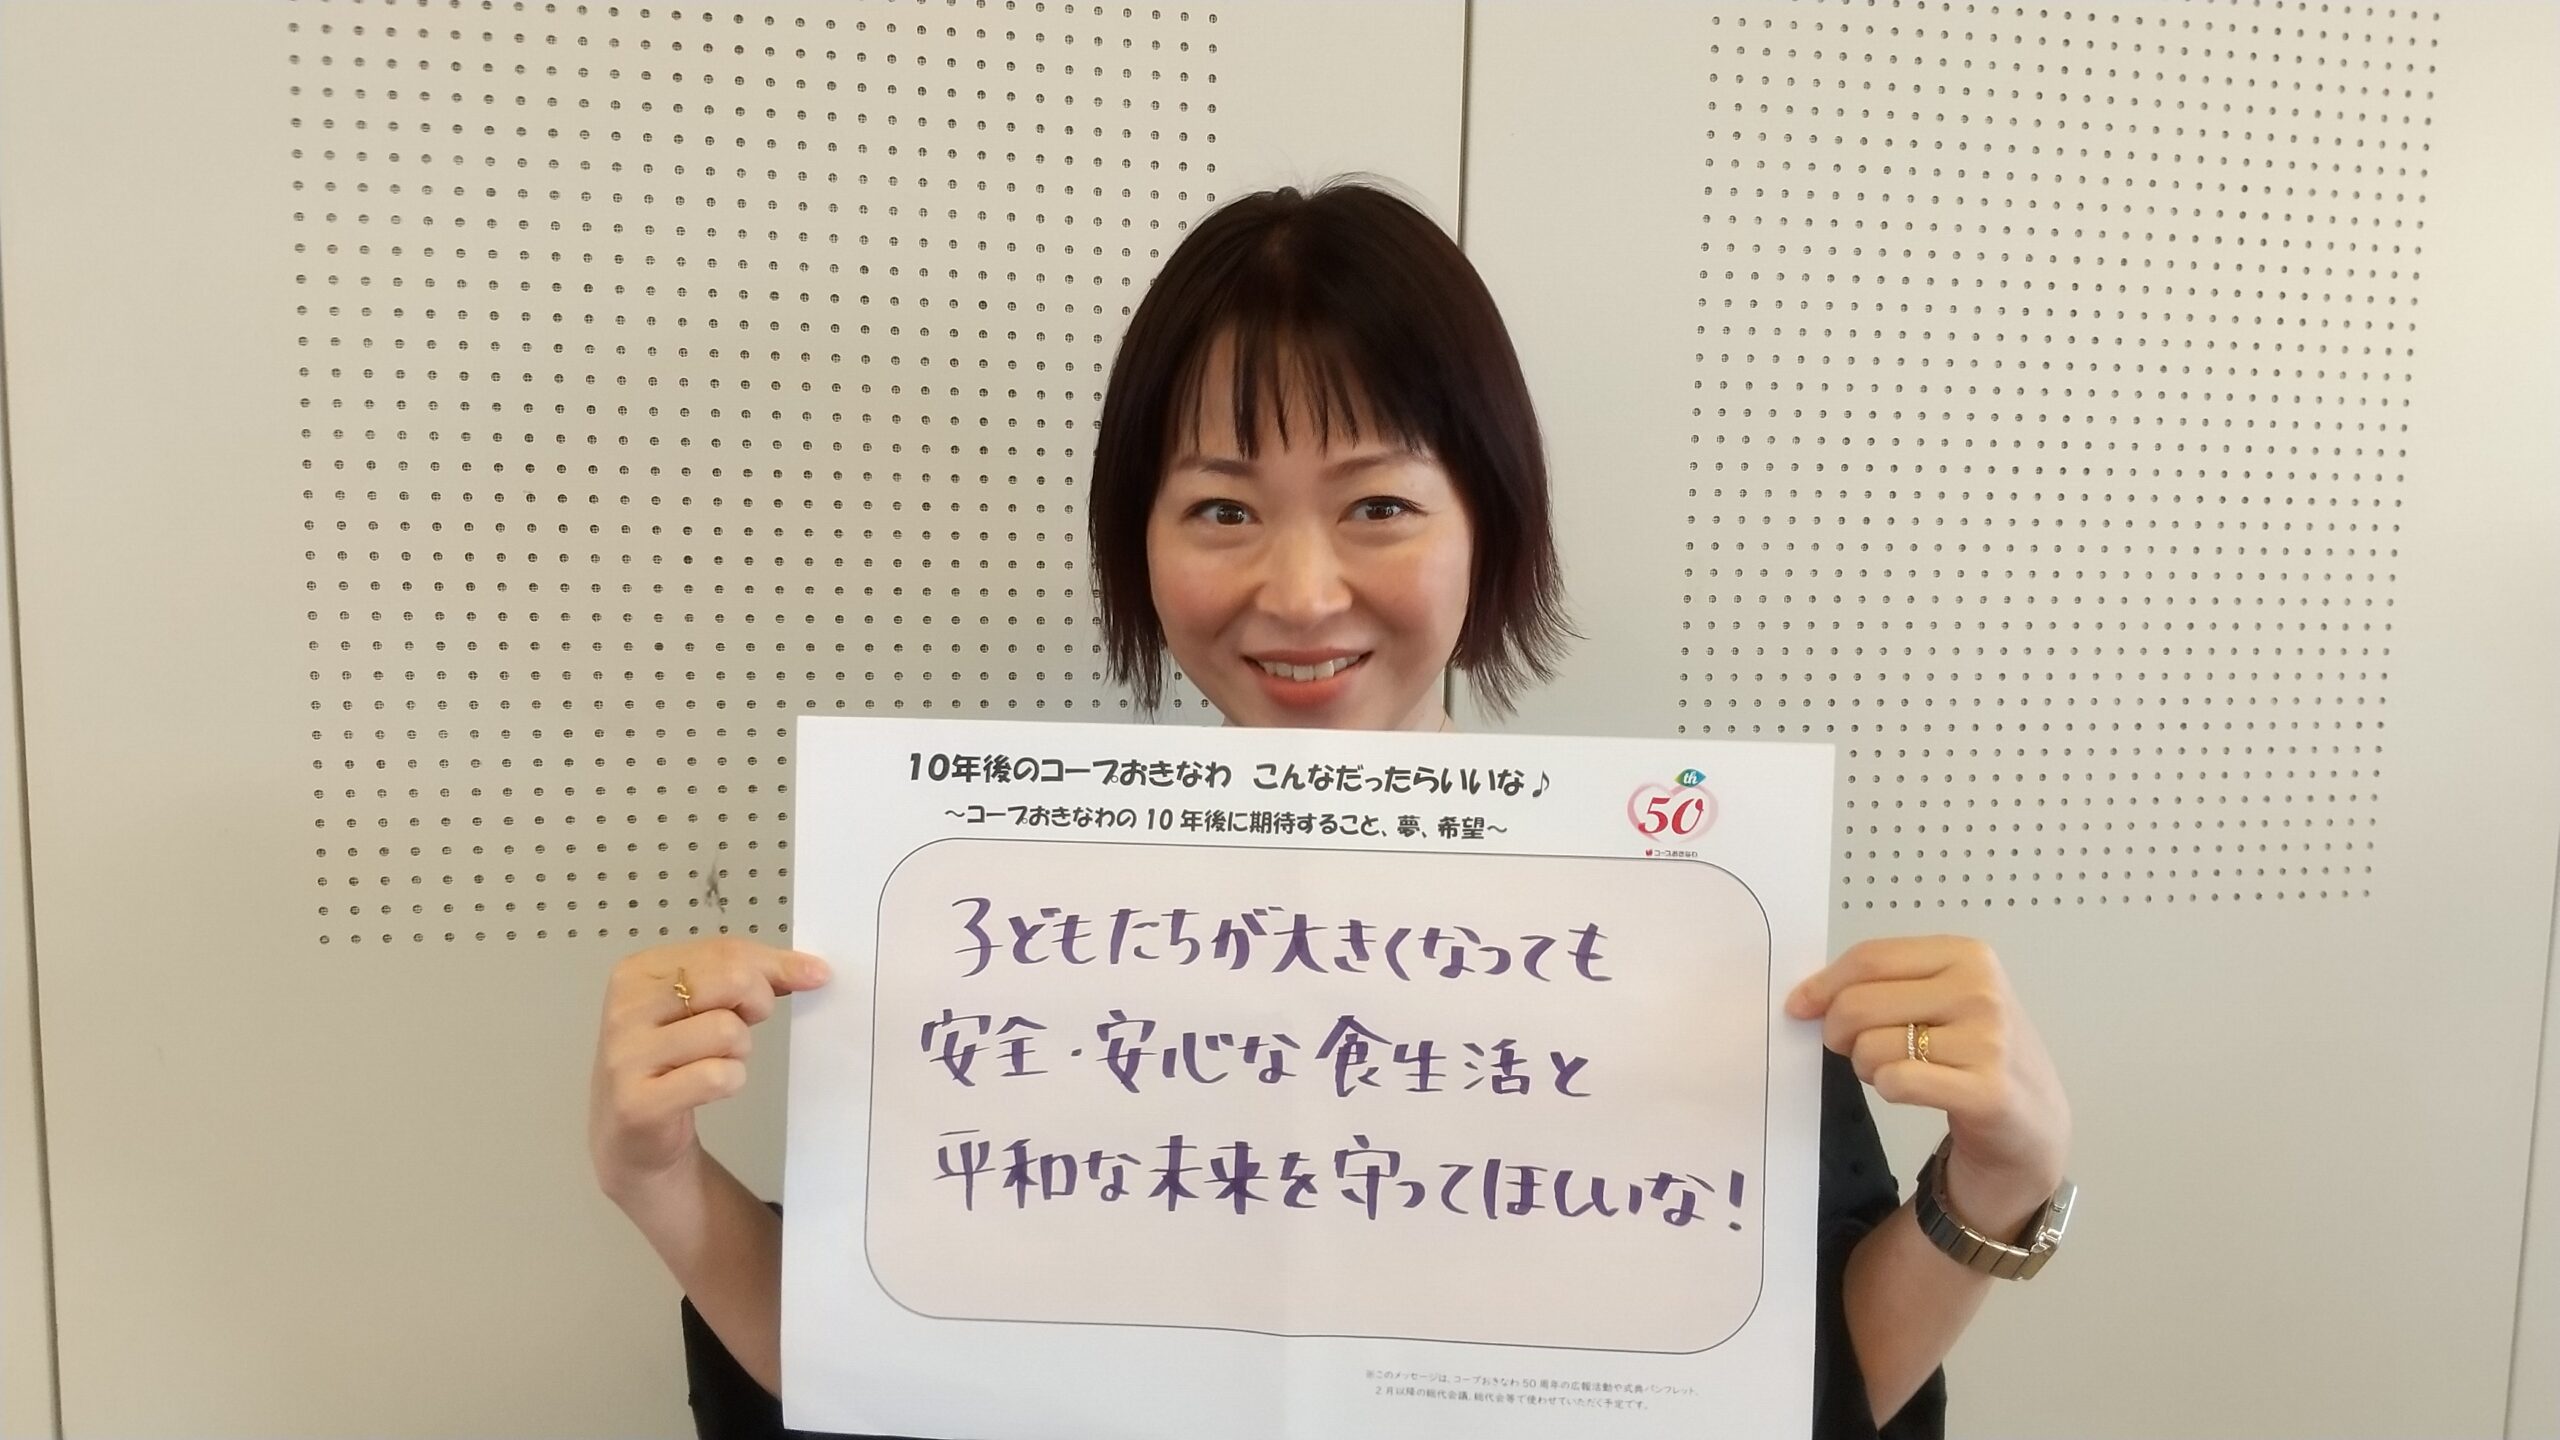 10年後のコープおきなわ こんなだったらいいな♪
～コープおきなわの10年後に期待すること、夢、希望～
50th
コープおきなわ
子どもたちが大きくなっても
安全・安心な食生活と
平和な未来を守ってほしいな!
※このメッセージは、コープおきなわ50周年の広報活動や式典パンフレット、
2月以降の総代会議、総代会等で使わせていただく予定です。